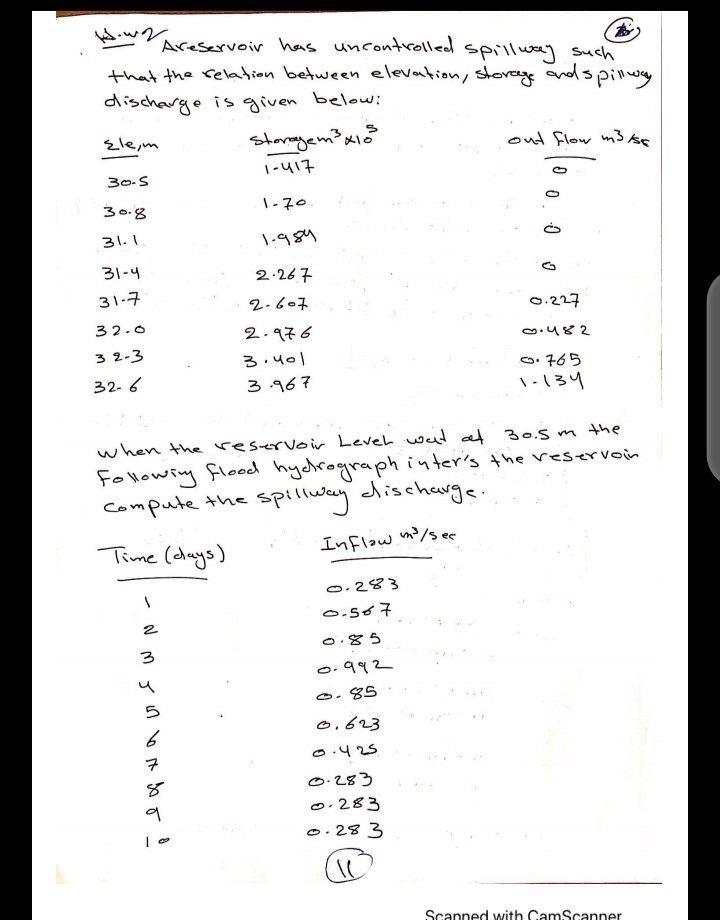 H.w2
A reservoir has uncontrolled spillway such
that the relation between elevation, storage and spillway
discharge is given below:
Ele,m Storage m³ x10⁵ out flow m³/sec
30.5 1.417 0
30.8 1.70 0
31.1 1.984 0
31.4 2.267 0
31.7 2.607 0.227
32.0 2.976 0.482
32.3 3.401 0.765
32.6 3.967 1.134
when the reservoir Level wat at 30.5 m the
Following flood hydrograph inter's the reservoir
compute the spillway discharge.
Time (days) Inflow m³/sec
1 0.283
2 0.567
3 0.85
4 0.992
5 0.85
6 0.623
7 0.425
8 0.283
9 0.283
10 0.283
11
Scanned with CamScanner